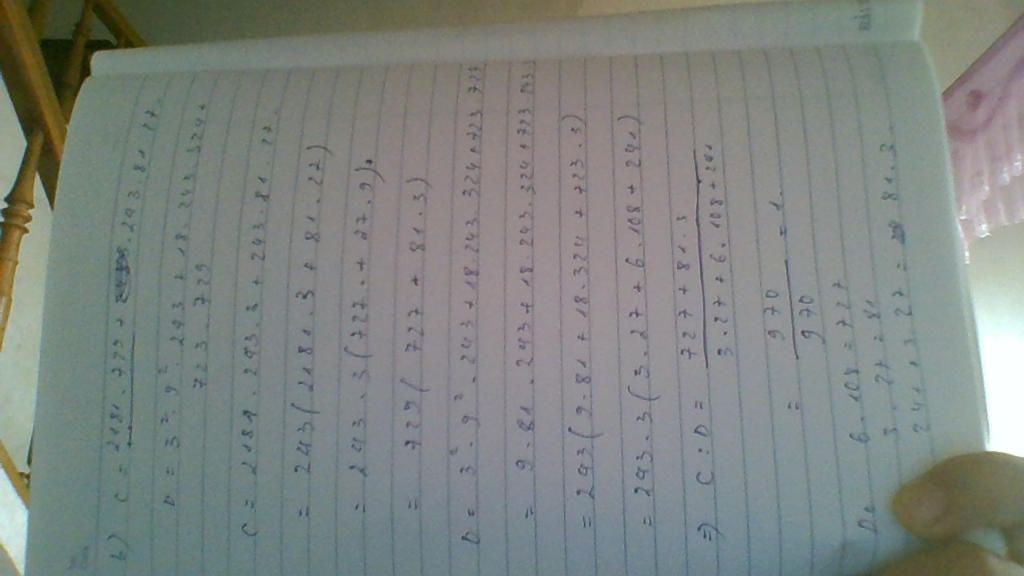 b) C = 2181.729 + 243.81.27
D = 3².9².243 + 18.243.324 +
723.729
C = 2181.243.3 + 243.81.27.
= 243(2181.3 + 81.27)
= 243.3(727. + 27.9).
= 729(727 + 81.3)
D = 3².9².243 + 18.243.324+723.729
= 9.81.243+18.243.324+723.243.3
= 243(9.81+18.324+723.3)
= 243.3(3.27+6.108+241)
=> C:D = 727+81.3
3.27+6.108+241
= 970 = 1.
970
6.108 = 727
3.27 = 81
241+3.27 = 81.3